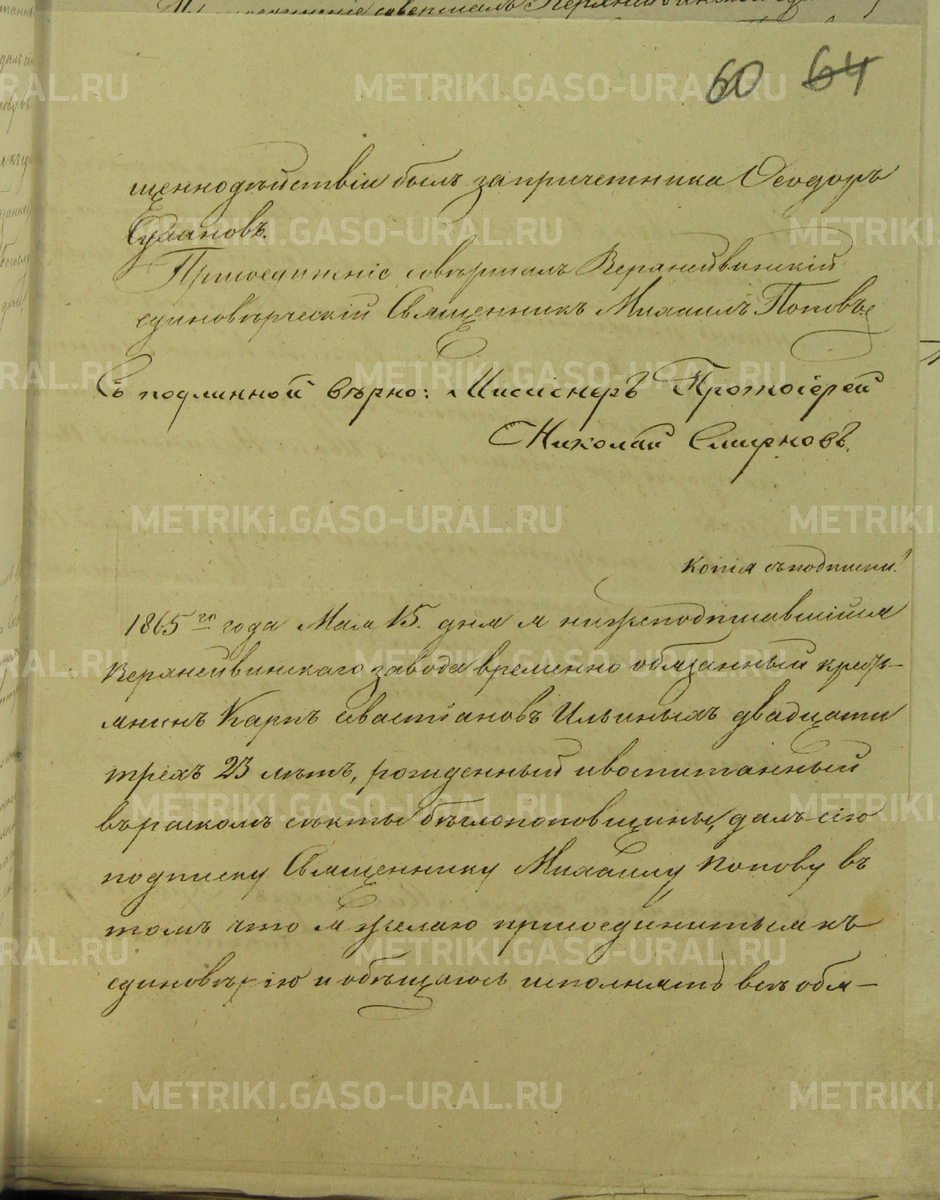 60 64
щеннодѣйствіи былъ запричетника Ѳеодоръ
Присоединеніе совершалъ Верхнейвинскій
единовѣрческій Священникъ Михаилъ Поповъ
Съ подлинной вѣрно: Миссіонеръ Протоіерей
Николай Смирновъ.
Копія съ подписки.
1865го года Мая 15. дня я нижеподписавшійся
Верхнейвинскаго завода временно обязанный кресть-
янинъ Карпъ Севастіановъ Ильиныхъ двадцати
трехъ 23 лѣтъ, рожденный и воспитанный
въ расколѣ секты бѣглопоповщины, далъ сію
подписку Священнику Михаилу Попову въ
томъ что я желаю присоединиться къ
единовѣрію и обѣщаюсь исполнять всѣ обя-
METRIKI.GASO-URAL.RU